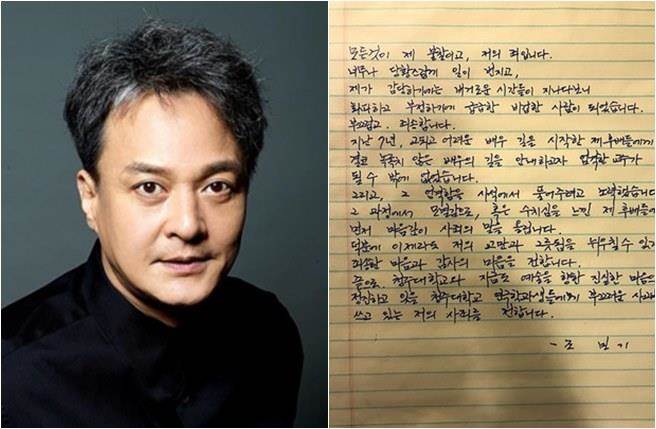 모든것이 제 불찰이고, 저의 죄입니다.
너무나 당황스럽게 일이 번지고,
제가 감당하기에는 버거운 시간들이 지나다보니
회피하고 부정하기에 급급한 비겁한 사람이 되었습니다.
부끄럽고, 죄송합니다.
지난 7년, 고되고 어려운 배우 길을 시작한 제 후배들에게
결코 녹록지 않은 배우의 길을 안내하고자 엄격한 교수가
될 수 밖에 없었습니다.
그리고, 그 엄격함을 사석에서 풀어주려고 노력했습니다
그 과정에서 모멸감으로, 혹은 수치심을 느낀 제 후배들에
먼저 마음깊이 사죄의 말을 올립니다.
덕분에 이제라도 저의 교만과 그릇됨을 뉘우칠 수 있
죄송한 마음과 감사의 마음을 전합니다.
끝으로, 청주대학교와 지금도 예술을 향한 진실한 마음으
정진하고 있을 청주대학교 연극학과 학생들에게 부끄러운 사과
쓰고 있는 저의 사죄를 전합니다.
- 조 민 기